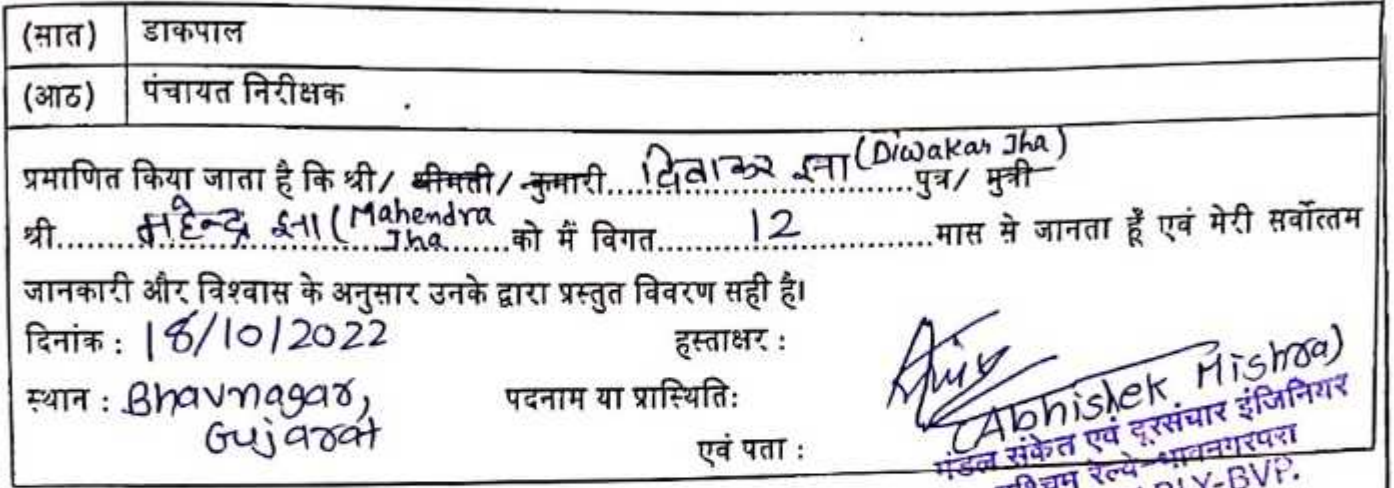 (सात) डाकपाल
(आठ) पंचायत निरीक्षक
प्रमाणित किया जाता है कि श्री/ श्रीमती/ कुमारी....दिवाकर झा (Diwakar Jha)....पुत्र/ पुत्री
श्री....महेन्द्र झा (Mahendra Jha....को मैं विगत....12....मास से जानता हूँ एवं मेरी सर्वोत्तम
जानकारी और विश्वास के अनुसार उनके द्वारा प्रस्तुत विवरण सही है।
दिनांक : 18/10/2022 हस्ताक्षर :
(Abhishek Mishra)
स्थान : Bhavnagar, पदनाम या प्रास्थिति:
Gujarat
मंडल संकेत एवं दूरसंचार इंजिनियर
एवं पता :
पश्चिम रेल्वे-भावनगरपरा
BVP.